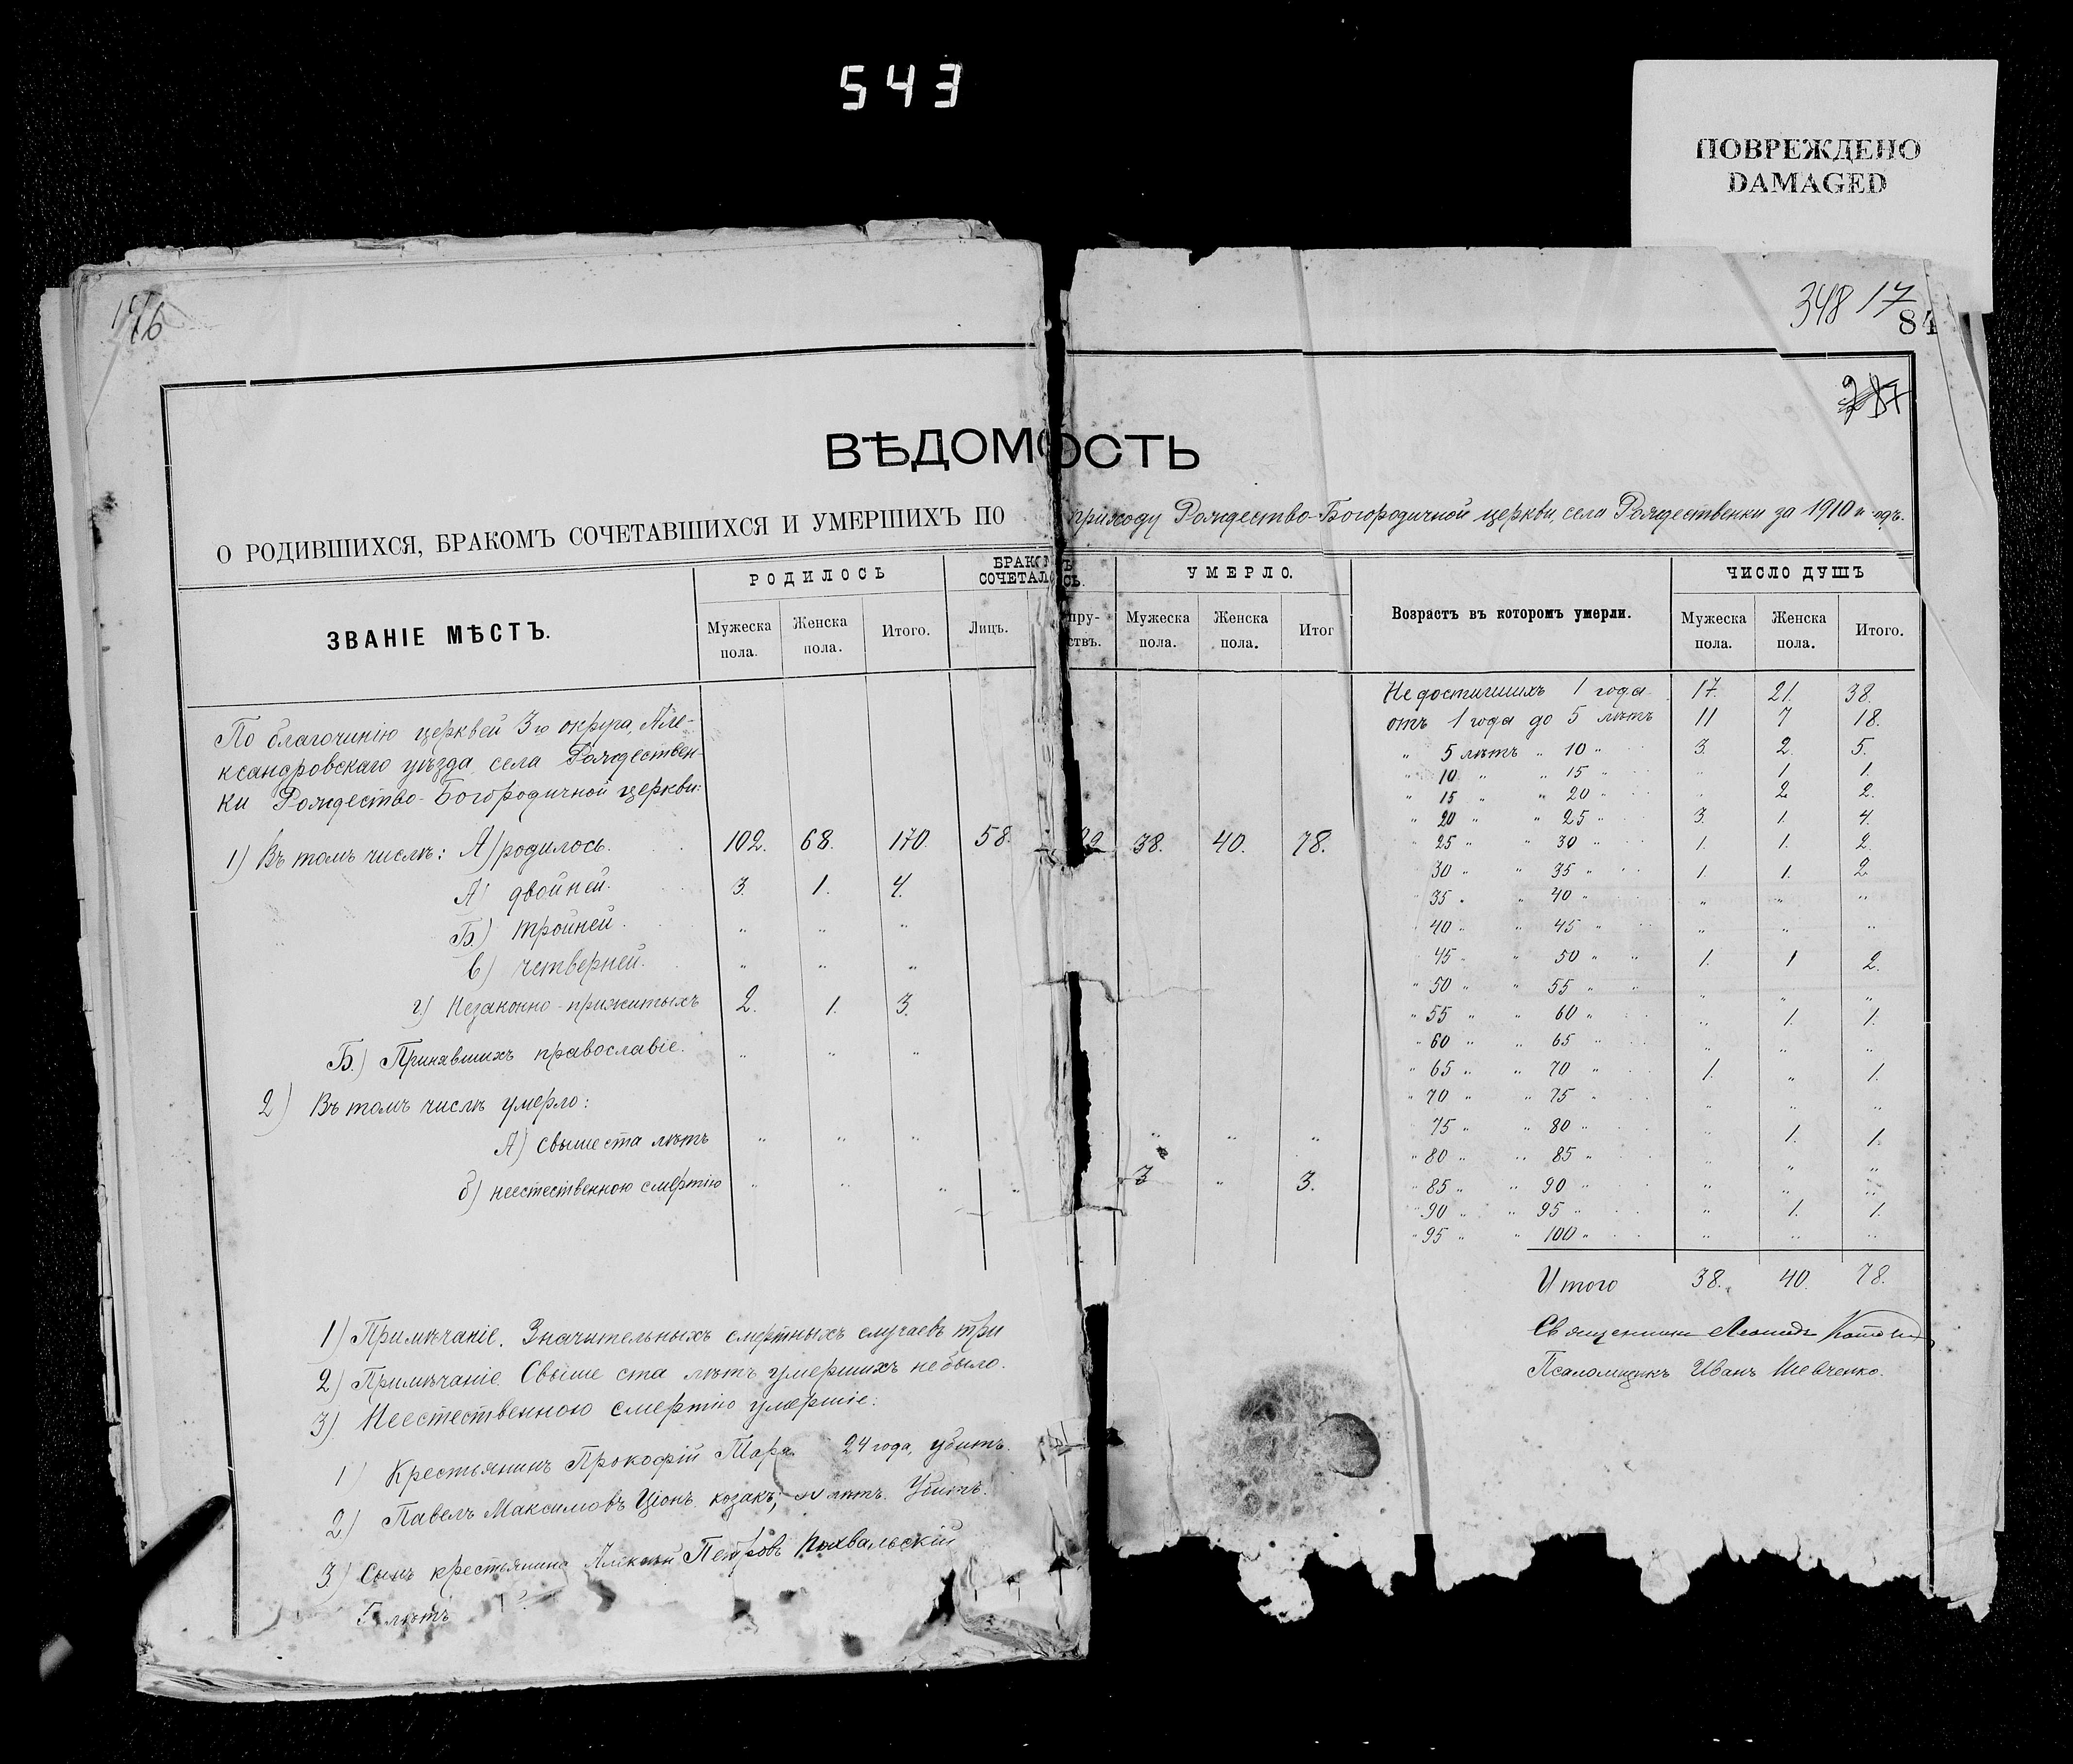 543
ПОВРЕЖДЕНО
DAMAGED
348 17
84
ВѢДОМОСТЬ
О РОДИВШИХСЯ, БРАКОМЪ СОЧЕТАВШИХСЯ И УМЕРШИХЪ ПО приходу Рождество-Богородичной церкви, села Рождественки за 1910 годъ.
ЗВАНІЕ МѢСТЪ.
РОДИЛОСЬ
БРАКОМЪ СОЧЕТАЛОСЬ.
УМЕРЛО.
Возрастъ въ которомъ умерли.
ЧИСЛО ДУШЪ
Мужеска пола. Женска пола. Итого. Лицъ. Мужеска пола. Женска пола. Итог Мужеска пола. Женска пола. Итого.
По благочинію церквей 3го округа, Але-
ксандровскаго уѣзда села Рождествен-
ки Рождество-Богородичной церкви:
1) Въ томъ числѣ: А) родилось. 102. 68. 170. 58. 38. 40. 78.
А) двойней. 3 1. 4.
Б.) тройней. " " "
в) четверней. " " "
г) Незаконно-прижитыхъ 2. 1. 3.
Б.) Принявшихъ православіе. " " "
2) Въ томъ числѣ умерло:
А) свыше ста лѣтъ " " " " " "
б) неестественною смертію " " " " 3 " 3.
Не достигшихъ 1 года 17. 21. 38.
отъ 1 года до 5 лѣтъ 11 7 18.
" 5 лѣтъ " 10 " 3. 2. 5.
" 10 " " 15 " " 1. 1.
" 15 " " 20 " " 2. 2.
" 20 " " 25 " 3. 1. 4.
" 25 " " 30 " 1. 1. 2.
" 30 " " 35 " 1. 1. 2
" 35 " " 40 " " " "
" 40 " " 45 " " " "
" 45 " " 50 " " 1. 1 2.
" 50 " " 55 " " " " "
" 55 " " 60 " " 1. 1.
" 60 " " 65 " " " "
" 65 " " 70 " 1. " 1.
" 70 " " 75 " " " "
" 75 " " 80 " " 1. 1.
" 80 " " 85 " " " "
" 85 " " 90 " " " "
" 90 " " 95 " " 1. 1.
" 95 " " 100 " " " "
Итого 38. 40. 78.
Священникъ Леонидъ
Псаломщикъ Иванъ Шевченко.
1) Примѣчаніе. Значительныхъ смертныхъ случаевъ три
2) Примѣчаніе. Свыше ста лѣтъ умершихъ не было.
3) Неестественною смертію умершіе:
1) Крестьянинъ Прокофій 24 года, убитъ.
2) Павелъ Максимовъ Ціонъ козакъ, лѣтъ. Убитъ.
3) Сынъ крестьянина Алексѣй Петровъ Похвальскій
лѣтъ